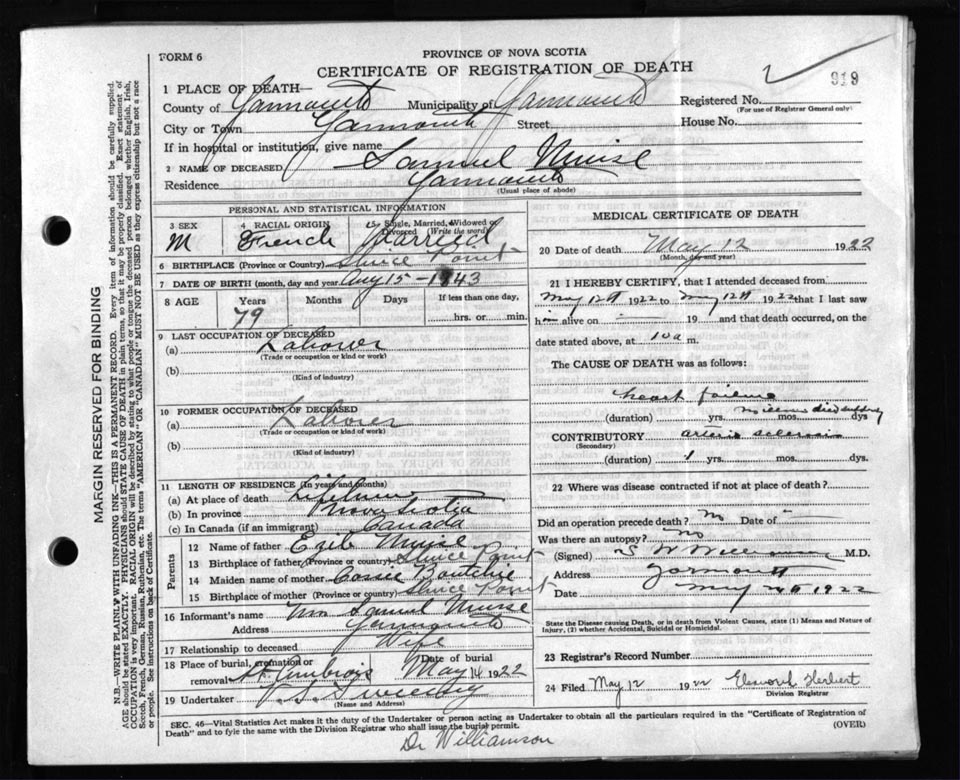 FORM 6
PROVINCE OF NOVA SCOTIA
CERTIFICATE OF REGISTRATION OF DEATH
919
1 PLACE OF DEATH—
County of Yarmouth Municipality of Yarmouth Registered No.
(For use of Registrar General only)
City or Town Yarmouth Street House No.
If in hospital or institution, give name
2 NAME OF DECEASED Samuel Muise
Residence Yarmouth
(Usual place of abode)
PERSONAL AND STATISTICAL INFORMATION
3 SEX 4 RACIAL ORIGIN 5 Single, Married, Widowed or Divorced (Write the word)
M French Married
6 BIRTHPLACE (Province or Country) Sluice Point
7 DATE OF BIRTH (month, day and year) Aug 15 – 1843
8 AGE Years Months Days If less than one day,
79 hrs. or min.
9 LAST OCCUPATION OF DECEASED
(a) Laborer
(Trade or occupation or kind or work)
(b)
(Kind of industry)
10 FORMER OCCUPATION OF DECEASED
(a) Laborer
(Trade or occupation or kind or work)
(b)
(Kind of industry)
11 LENGTH OF RESIDENCE (In years and months)
(a) At place of death Lifetime
(b) In province Nova Scotia
(c) In Canada (if an immigrant) Canada
Parents
12 Name of father Muise
13 Birthplace of father (Province or country) Sluice Point
14 Maiden name of mother
15 Birthplace of mother (Province or country) Sluice Point
16 Informant's name Mrs Samuel Muise
Address Yarmouth
17 Relationship to deceased Wife
18 Place of burial, cremation or removal St Ambrois Date of burial May 14 1922
19 Undertaker V. S. Sweeney
(Name and Address)
MEDICAL CERTIFICATE OF DEATH
20 Date of death May 12 1922
(Month, day and year)
21 I HEREBY CERTIFY, that I attended deceased from
May 12th 1922 to May 12th 1922 that I last saw
him alive on 19 and that death occurred, on
date stated above, at 10 a m.
The CAUSE OF DEATH was as follows:
heart failure
(duration) yrs. mos. dys
died suddenly
CONTRIBUTORY
(Secondary)
(duration) 1 yrs. mos. dys.
22 Where was disease contracted if not at place of death?
Did an operation precede death? No Date of
Was there an autopsy? No
(Signed) S W Williamson M.D.
Address Yarmouth
Date May 1922
State the Disease causing Death, or in death from Violent Causes, state (1) Means and Nature of
Injury, (2) whether Accidental, Suicidal or Homicidal.
23 Registrar's Record Number
24 Filed May 12 1922 Elsworth Herbert
Division Registrar
SEC. 46—Vital Statistics Act makes it the duty of the Undertaker or person acting as Undertaker to obtain all the particulars required in the "Certificate of Registration of
Death" and to fyle the same with the Division Registrar who shall issue the burial permit. (OVER)
Dr Williamson
MARGIN RESERVED FOR BINDING
N.B.—WRITE PLAINLY WITH UNFADING INK—THIS IS A PERMANENT RECORD. Every item of information should be carefully supplied.
AGE should be stated EXACTLY. PHYSICIANS should STATE CAUSE OF DEATH in plain terms, so that it may be properly classified. Exact statement of
OCCUPATION is very important. RACIAL ORIGIN will be described by stating to what people or tongue the deceased person belonged whether English, Irish,
Scotch, French, German, Russian, Ruthenian, etc. The terms "AMERICAN" OR "CANADIAN" MUST NOT BE USED as they express citizenship but not a race
or people. See instructions on back of Certificate.